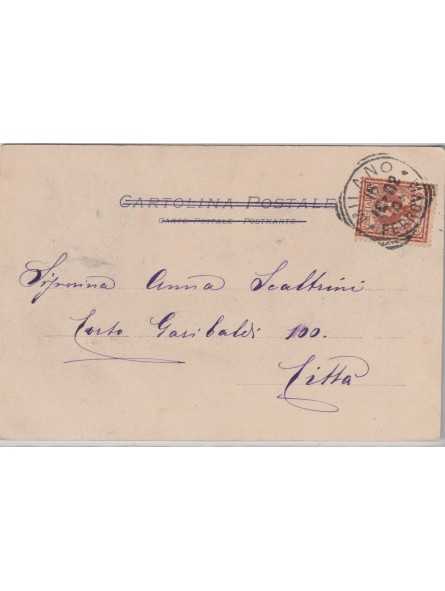 CARTOLINA POSTALE
CARTE POSTALE POSTKARTE
MILANO
FERROVIA
Signorina Anna Scaltrini
Corso Garibaldi 100.
Città